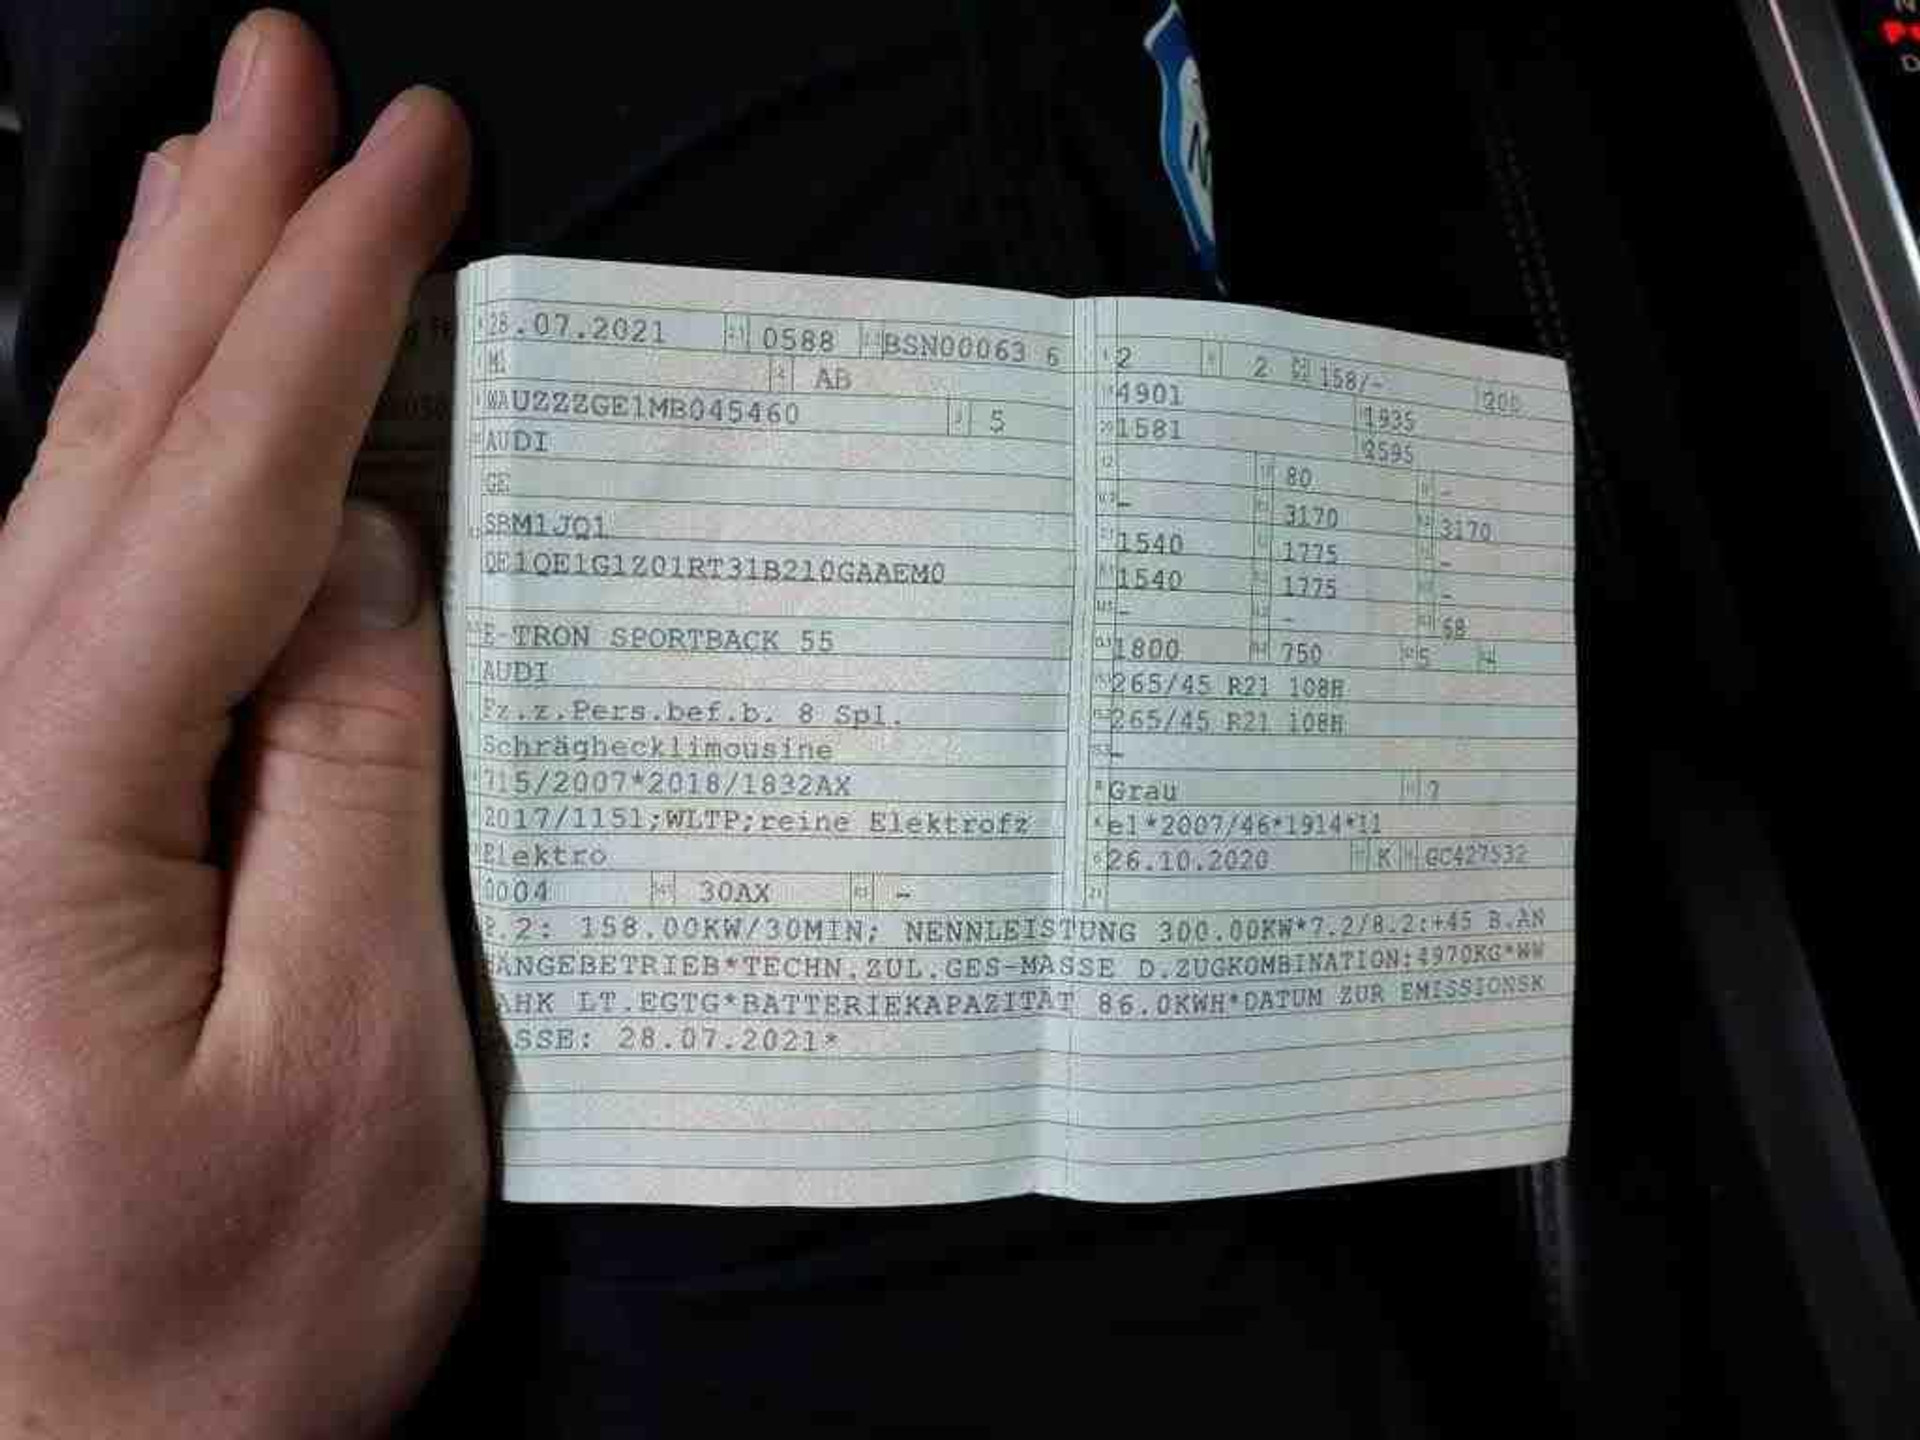 28.07.2021 0588 BSN00063 6
M1 AB
WAUZZZGE1MB045460 5
AUDI
GE
SBM1JQ1
QE1QE1G1Z01RT31B210GAAEM0
E-TRON SPORTBACK 55
AUDI
Fz.z.Pers.bef.b. 8 Spl.
Schräghecklimousine
715/2007*2018/1832AX
2017/1151;WLTP;reine Elektrofz
Elektro
0004 30AX -
2 2 158/- 200
4901 1935
1581 2595
80 -
- 3170 3170
1540 1775 -
1540 1775 -
- - 68
1800 750 5 -
265/45 R21 108H
265/45 R21 108H
-
Grau 7
e1*2007/46*1914*11
26.10.2020 K GC427532
P.2: 158.00KW/30MIN; NENNLEISTUNG 300.00KW*7.2/8.2:+45 B.AN
HÄNGEBETRIEB*TECHN.ZUL.GES-MASSE D.ZUGKOMBINATION:4970KG*WW
AHK LT.EGTG*BATTERIEKAPAZITÄT 86.0KWH*DATUM ZUR EMISSIONSK
ASSE: 28.07.2021*